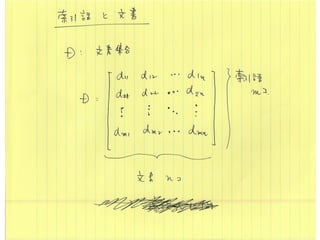 索引語 と 文書
D: 文書集合
D: [ d11 d12 ⋯ d1n
d21 d22 ⋯ d2n
⋮ ⋮ ⋱ ⋮
dm1 dm2 ⋯ dmn ] } 索引語 mコ
文書 nコ